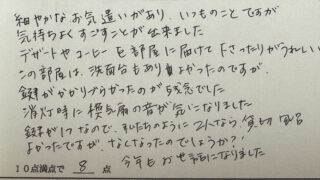 細やかなお気遣いがあり、いつものことですが
気持ちよくすごすことが出来ました
デザートやコーヒーを部屋に届けて下さったりがうれしい
この部屋は、洗面台もありよかったのですが、
鍵がかかりづらかったのが残念でした
消灯時に換気扇の音が気になりました
鍵が1つなので、私たちのように2人なら貸切風呂
よかったですが、なくなったのでしょうか?
今年もお世話になりました
10点満点で 8 点